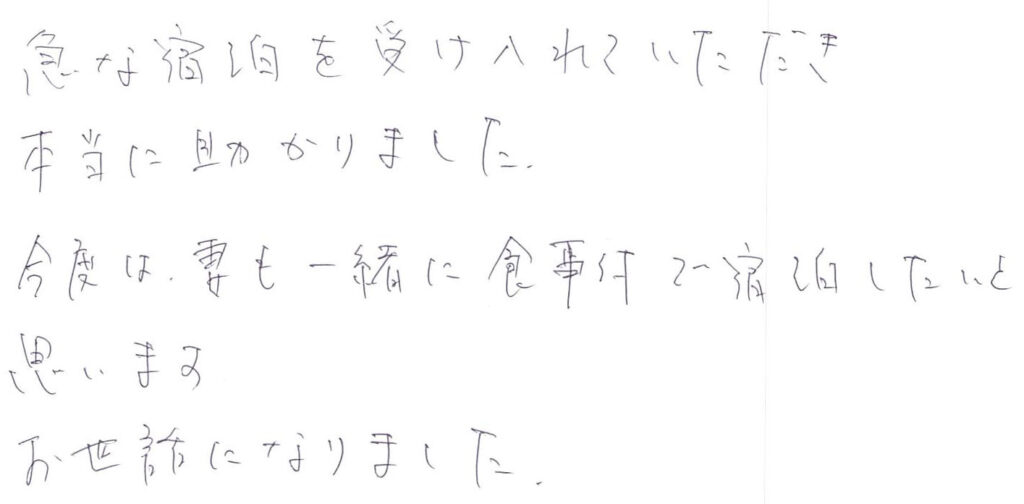 急な宿泊を受け入れていただき
本当に助かりました.
今度は.妻も一緒に食事付で宿泊したいと
思います
お世話になりました.